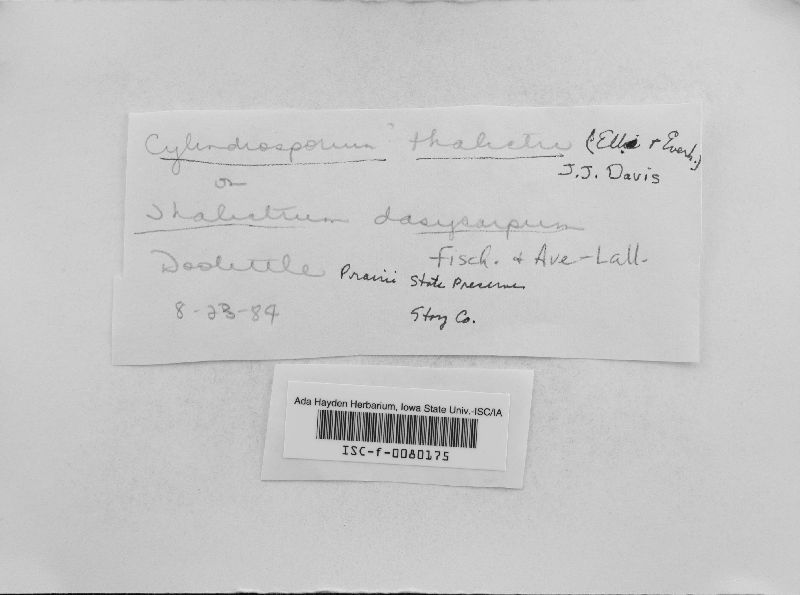 Cylindrosporium thalictri (Ellis & Everh.)
J.J. Davis
on
Thalictrum dasycarpum
Fisch. & Ave-Lall.
Doolittle Prairie State Preserve
8-23-84 Story Co.
Ada Hayden Herbarium, Iowa State Univ.-ISC/IA
ISC-f-0080175